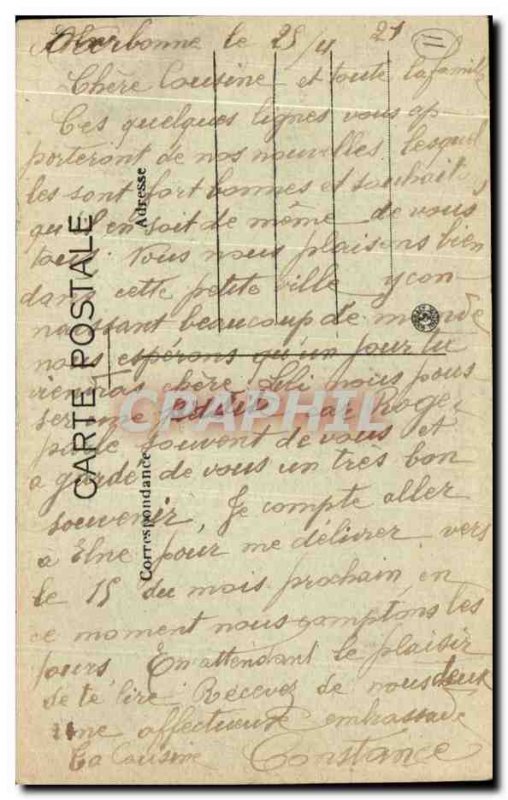 Narbonne le 25/4 21
Chère Cousine et toute la famille
Ces quelques lignes vous ap
porteront de nos nouvelles lesquel
les sont fort bonnes et souhait
qu'il en soit de même de vous
tous. Nous nous plaisons bien
dans cette petite ville y con
naissant beaucoup de monde
nous espérons qu'un jour tu
viendras chère nous
car Roger
parle souvent de vous et
a gardé de vous un très bon
souvenir, Je compte aller
a Elne pour me délivrer vers
le 15 du mois prochain en
ce moment nous comptons les
jours En attendant le plaisir
de te lire Recevez de nous deux
une affectueuse embrassade
Ta Cousine Constance
CARTE POSTALE
Correspondance
Adresse
CARTE POSTALE
CPAPHIL
11